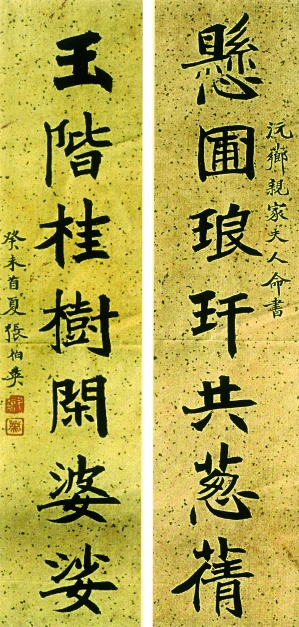 沅薌親家夫人命書
懸圃琅玕共葱蒨
玉階桂樹閑婆娑
癸未首夏張伯英